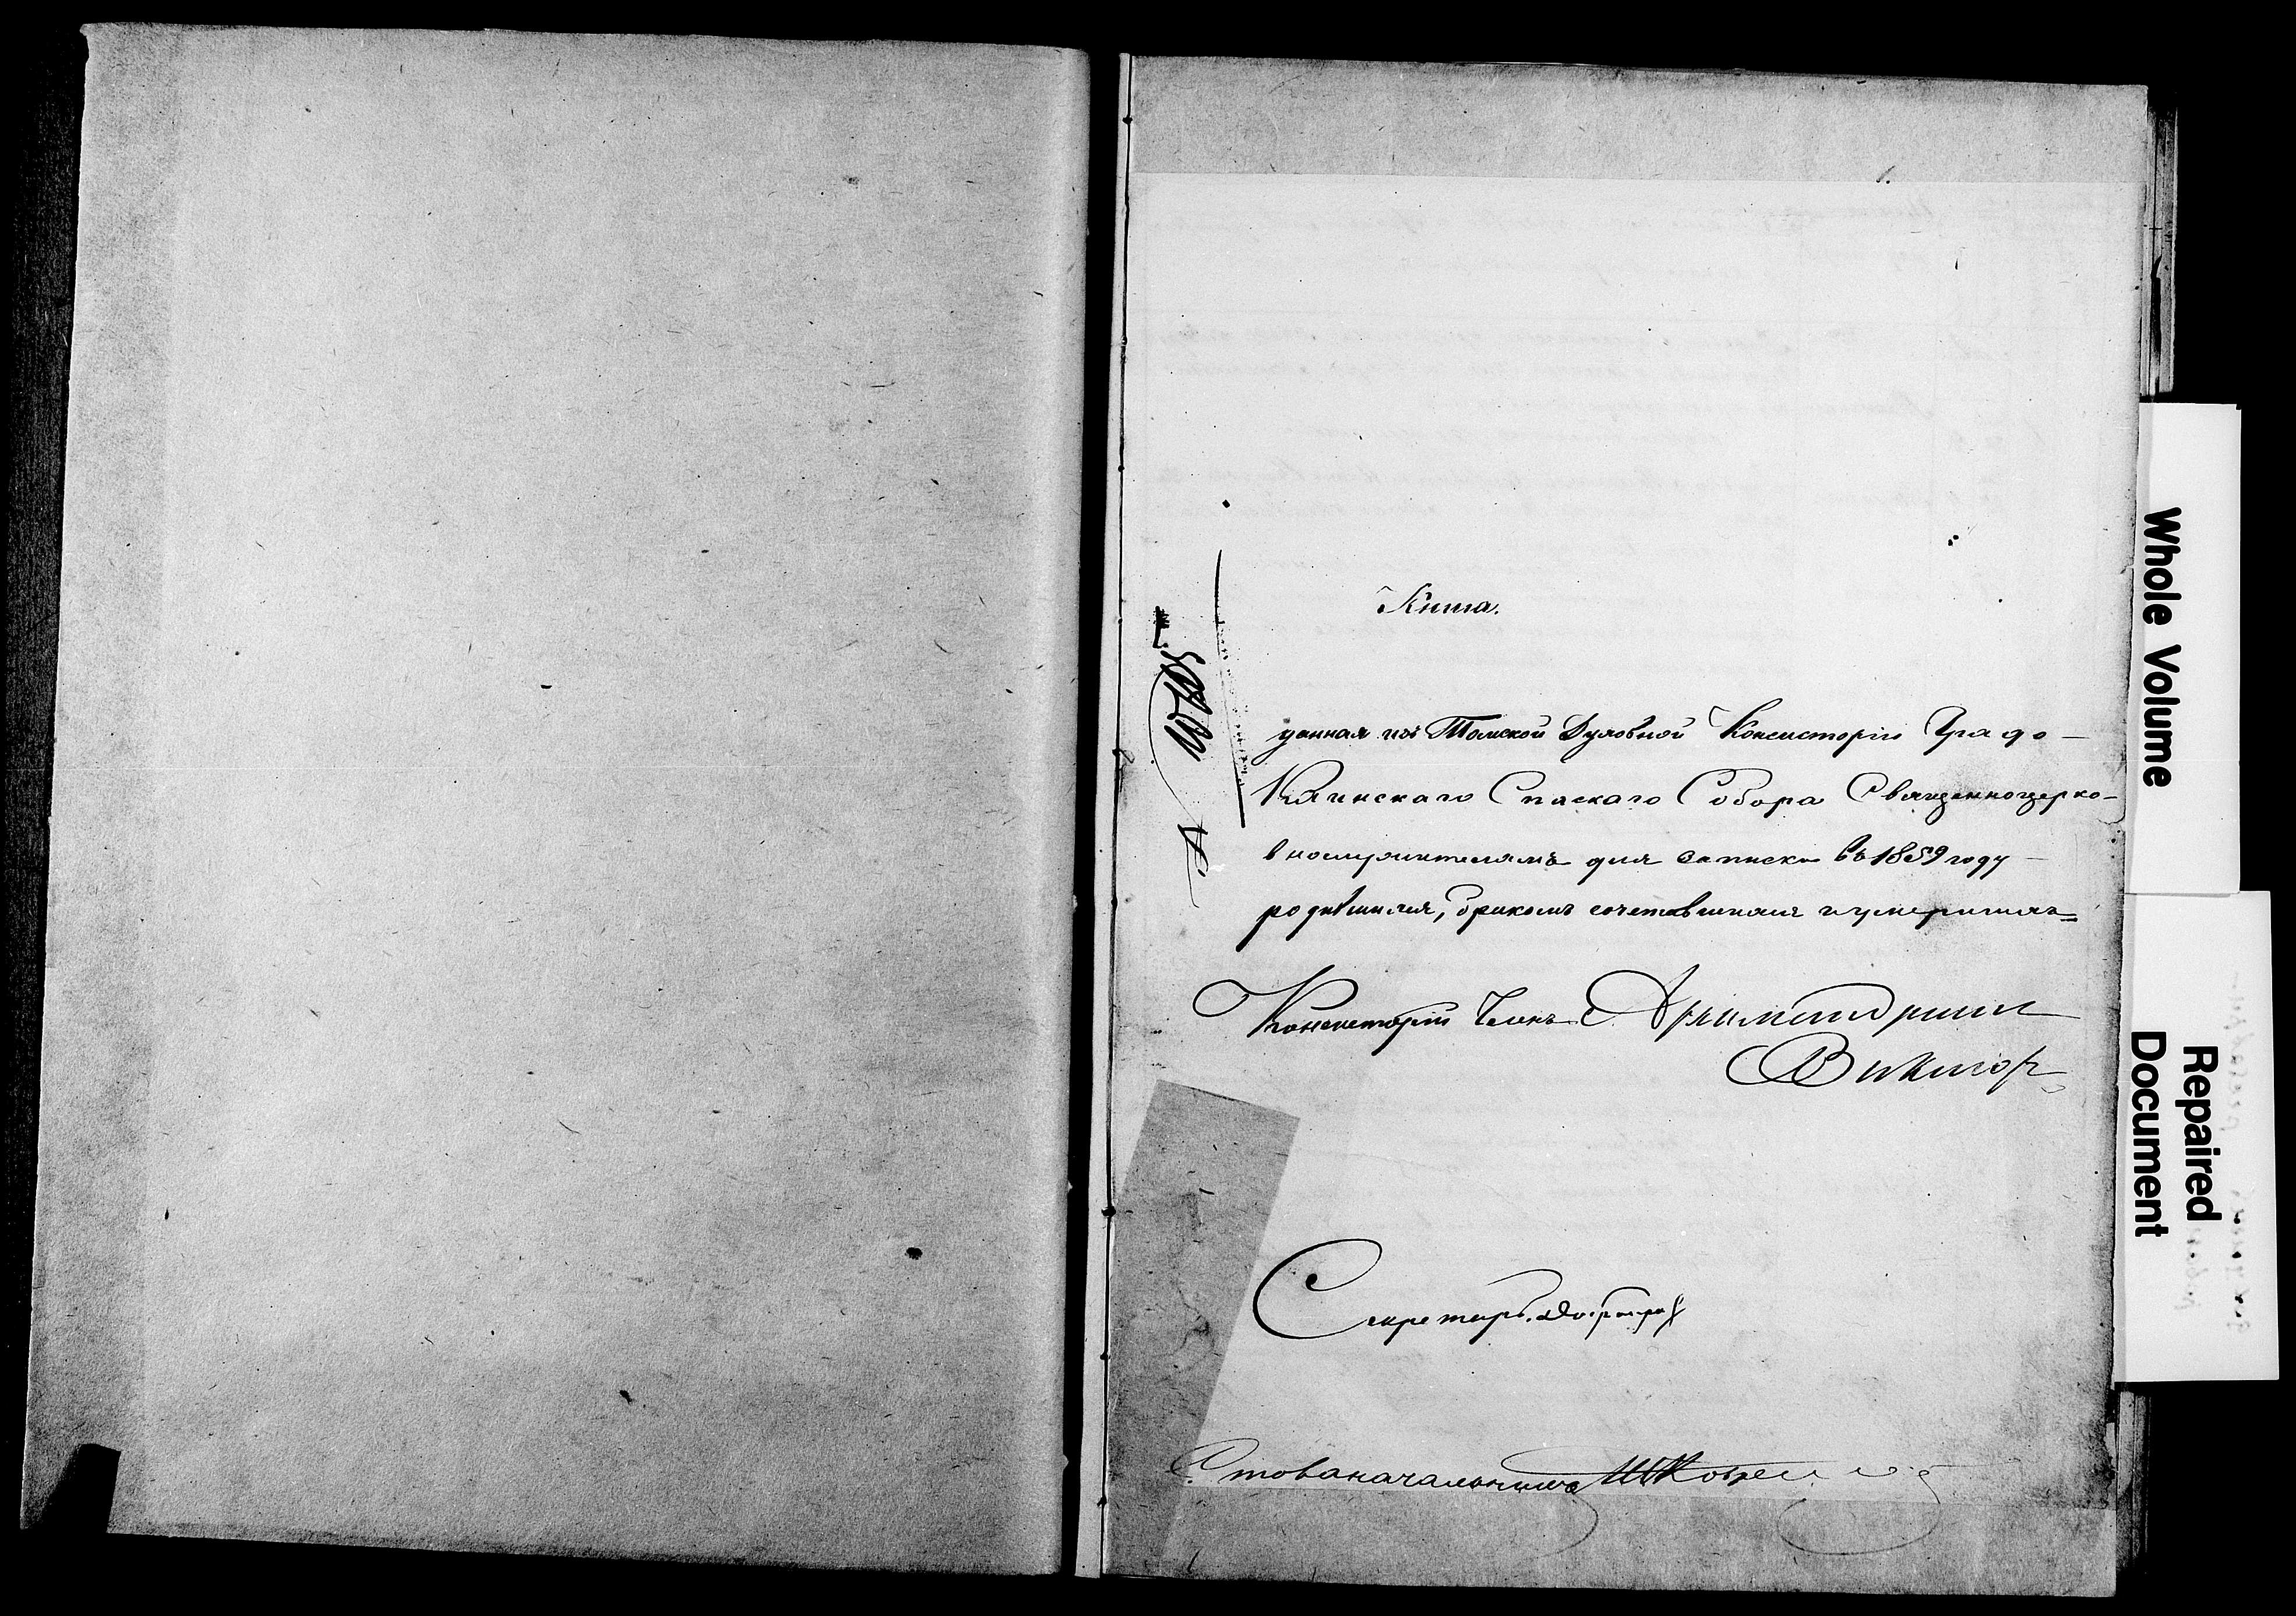 1.
Книга.
данная изъ Томской Духовной Консисторіи Градо-
Каинскаго Спаскаго Собора Священноцерко-
внослужителямъ для записки въ 1859 году
родившихся, бракомъ сочетавшихся и умершихъ
Консисторіи Членъ Архимандритъ
Викторъ
Секретарь
Столоначальникъ
Whole Volume
Repaired
Document